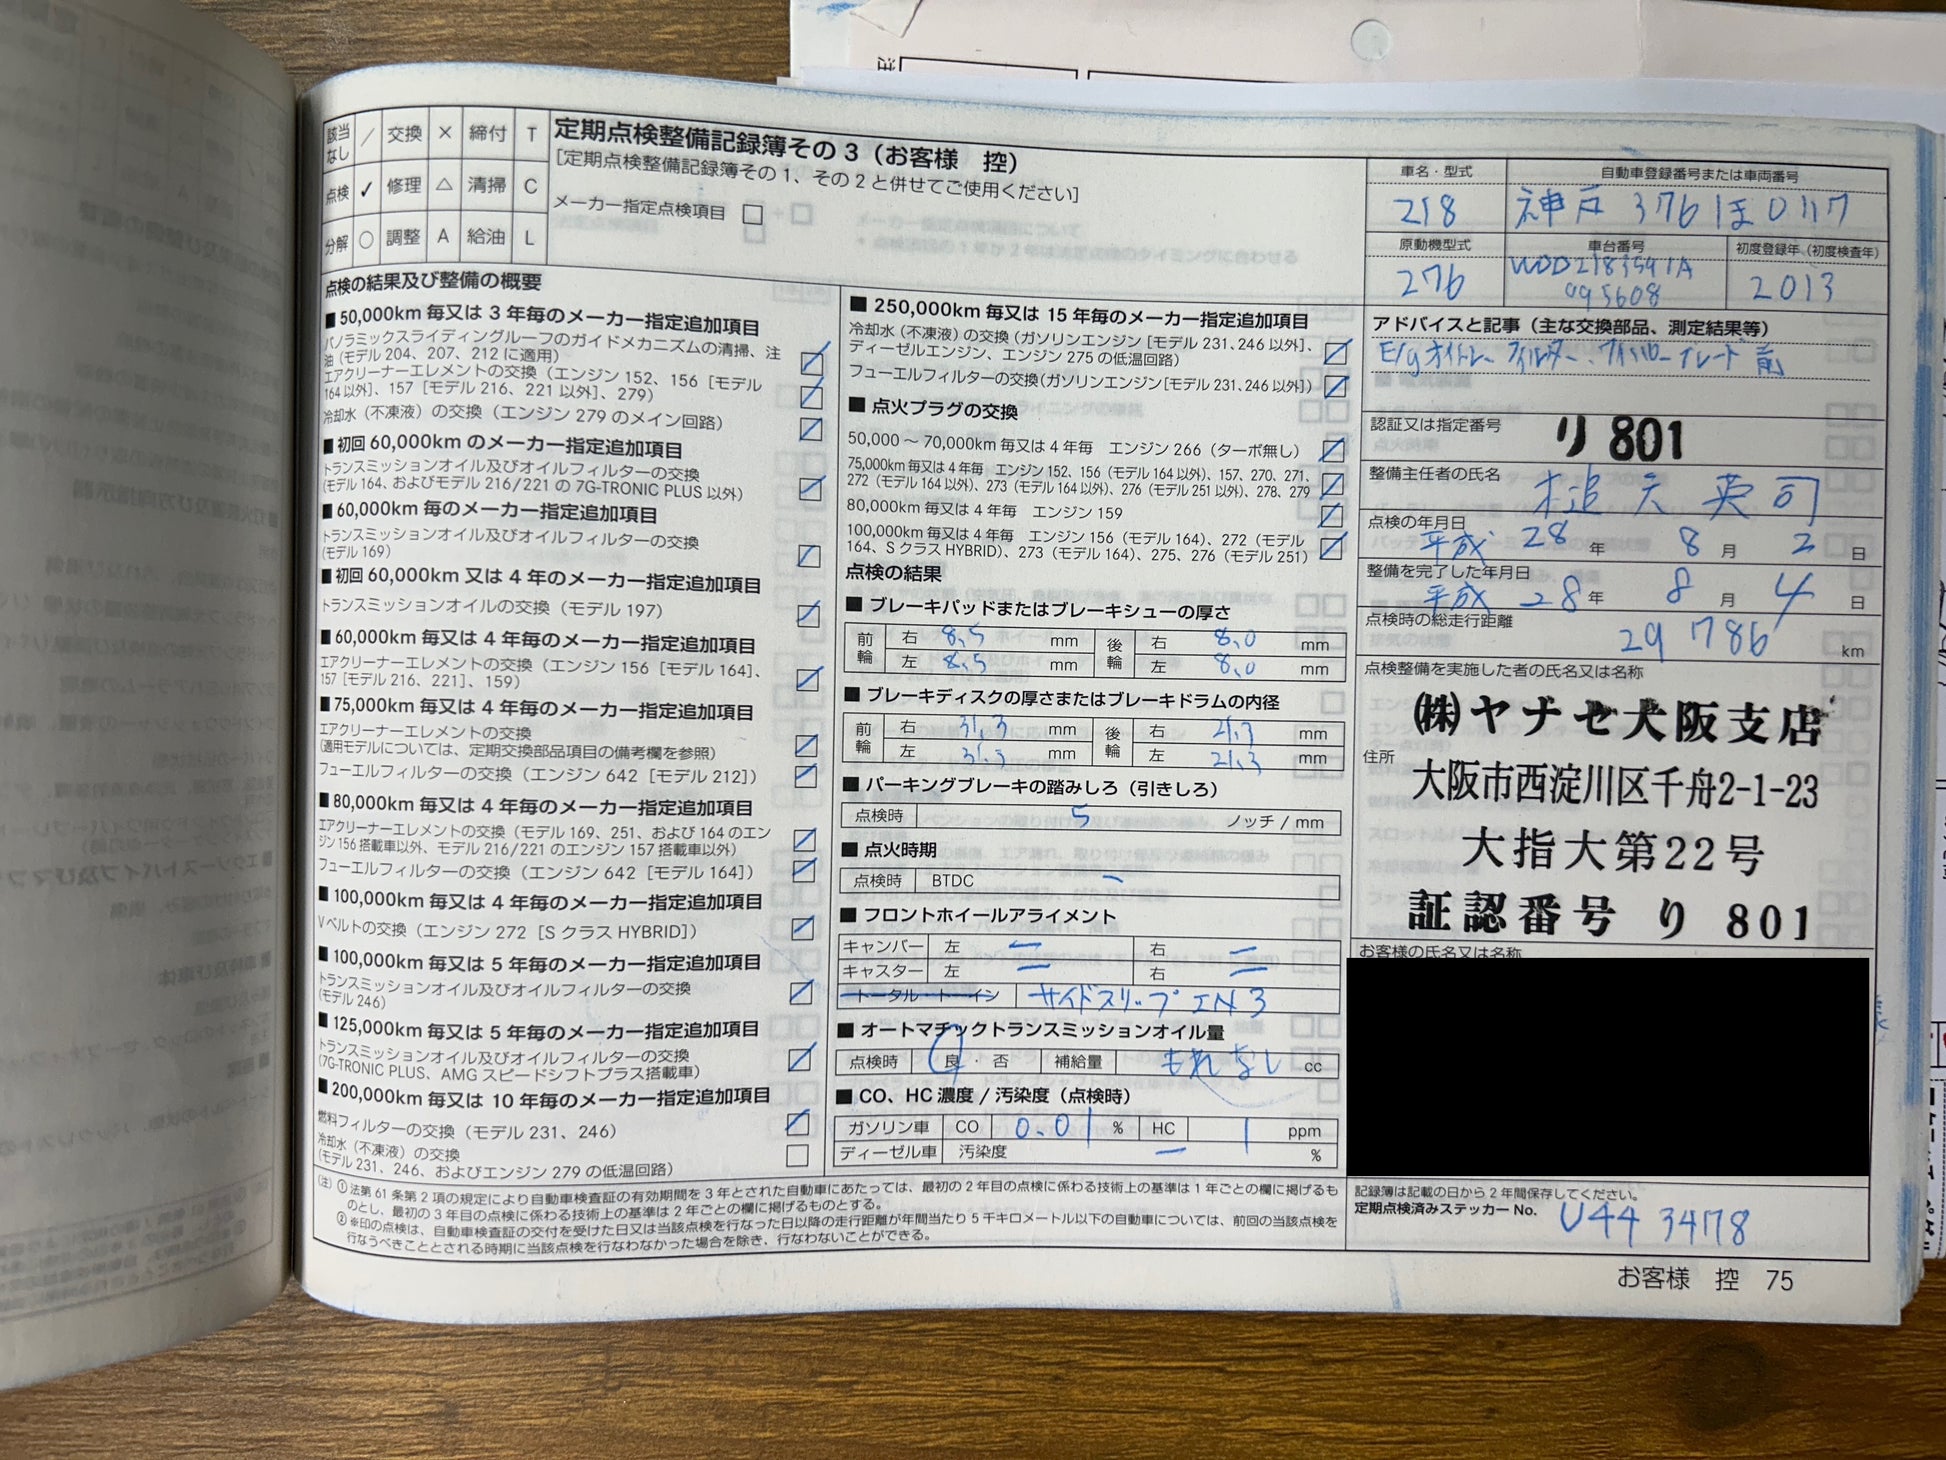 該当なし / 交換 × 締付 T
点検 ✓ 修理 △ 清掃 C
分解 ○ 調整 A 給油 L
定期点検整備記録簿その3（お客様 控）
［定期点検整備記録簿その1、その2と併せてご使用ください］
メーカー指定点検項目 □
点検の結果及び整備の概要
■50,000km毎又は3年毎のメーカー指定追加項目
パノラミックスライディングルーフのガイドメカニズムの清掃、注
油（モデル204、207、212に適用）
エアクリーナーエレメントの交換（エンジン152、156［モデル
164以外］、157［モデル216、221以外］、279）
冷却水（不凍液）の交換（エンジン279のメイン回路）
■初回60,000kmのメーカー指定追加項目
トランスミッションオイル及びオイルフィルターの交換
（モデル164、およびモデル216/221の7G-TRONIC PLUS以外）
■60,000km毎のメーカー指定追加項目
トランスミッションオイル及びオイルフィルターの交換
（モデル169）
■初回60,000km又は4年のメーカー指定追加項目
トランスミッションオイルの交換（モデル197）
■60,000km毎又は4年毎のメーカー指定追加項目
エアクリーナーエレメントの交換（エンジン156［モデル164］、
157［モデル216、221］、159）
■75,000km毎又は4年毎のメーカー指定追加項目
エアクリーナーエレメントの交換
（適用モデルについては、定期交換部品項目の備考欄を参照）
フューエルフィルターの交換（エンジン642［モデル212］）
■80,000km毎又は4年毎のメーカー指定追加項目
エアクリーナーエレメントの交換（モデル169、251、および164のエン
ジン156搭載車以外、モデル216/221のエンジン157搭載車以外）
フューエルフィルターの交換（エンジン642［モデル164］）
■100,000km毎又は4年毎のメーカー指定追加項目
Vベルトの交換（エンジン272［SクラスHYBRID］）
■100,000km毎又は5年毎のメーカー指定追加項目
トランスミッションオイル及びオイルフィルターの交換
（モデル246）
■125,000km毎又は5年毎のメーカー指定追加項目
トランスミッションオイル及びオイルフィルターの交換
（7G-TRONIC PLUS、AMGスピードシフトプラス搭載車）
■200,000km毎又は10年毎のメーカー指定追加項目
燃料フィルターの交換（モデル231、246）
冷却水（不凍液）の交換
（モデル231、246、およびエンジン279の低温回路）
■250,000km毎又は15年毎のメーカー指定追加項目
冷却水（不凍液）の交換（ガソリンエンジン［モデル231、246以外］、
ディーゼルエンジン、エンジン275の低温回路）
フューエルフィルターの交換（ガソリンエンジン［モデル231、246以外］）
■点火プラグの交換
50,000～70,000km毎又は4年毎 エンジン266（ターボ無し）
75,000km毎又は4年毎 エンジン152、156（モデル164以外）、157、270、271、
272（モデル164以外）、273（モデル164以外）、276（モデル251以外）、278、279
80,000km毎又は4年毎 エンジン159
100,000km毎又は4年毎 エンジン156（モデル164）、272（モデル
164、SクラスHYBRID）、273（モデル164）、275、276（モデル251）
点検の結果
■ブレーキパッドまたはブレーキシューの厚さ
前輪 右 8.5 mm 後輪 右 8.0 mm
左 8.5 mm 左 8.0 mm
■ブレーキディスクの厚さまたはブレーキドラムの内径
前輪 右 31.3 mm 後輪 右 21.3 mm
左 31.3 mm 左 21.3 mm
■パーキングブレーキの踏みしろ（引きしろ）
点検時 5 ノッチ/mm
■点火時期
点検時 BTDC ー
■フロントホイールアライメント
キャンバー 左 ー 右 ー
キャスター 左 ー 右 ー
トータル・トーイン サイドスリップ IN 3
■オートマチックトランスミッションオイル量
点検時 良・否 補給量 もれなし cc
■CO、HC濃度/汚染度（点検時）
ガソリン車 CO 0.01 % HC 1 ppm
ディーゼル車 汚染度 ー %
（注）①法第61条第2項の規定により自動車検査証の有効期間を3年とされた自動車にあたっては、最初の2年目の点検に係わる技術上の基準は1年ごとの欄に掲げるも
のとし、最初の3年目の点検に係わる技術上の基準は2年ごとの欄に掲げるものとする。
②※印の点検は、自動車検査証の交付を受けた日又は当該点検を行なった日以降の走行距離が年間当たり5千キロメートル以下の自動車については、前回の当該点検を
行なうべきこととされる時期に当該点検を行なわなかった場合を除き、行なわないことができる。
車名・型式 自動車登録番号または車両番号
218 神戸 376 ほ 0117
原動機型式 車台番号 初度登録年（初度検査年）
276 WDD2183591A 095608 2013
アドバイスと記事（主な交換部品、測定結果等）
E/gオイル、フィルター、ワイパーブレード 前
認証又は指定番号 り801
整備主任者の氏名 英司
点検の年月日
平成 28 年 8 月 2 日
整備を完了した年月日
平成 28 年 8 月 4 日
点検時の総走行距離
29 786 km
点検整備を実施した者の氏名又は名称
(株)ヤナセ大阪支店
住所
大阪市西淀川区千舟2-1-23
大指大第22号
証認番号 り 801
お客様の氏名又は名称
様
記録簿は記載の日から2年間保存してください。
定期点検済みステッカーNo. U44 3478
お客様 控 75